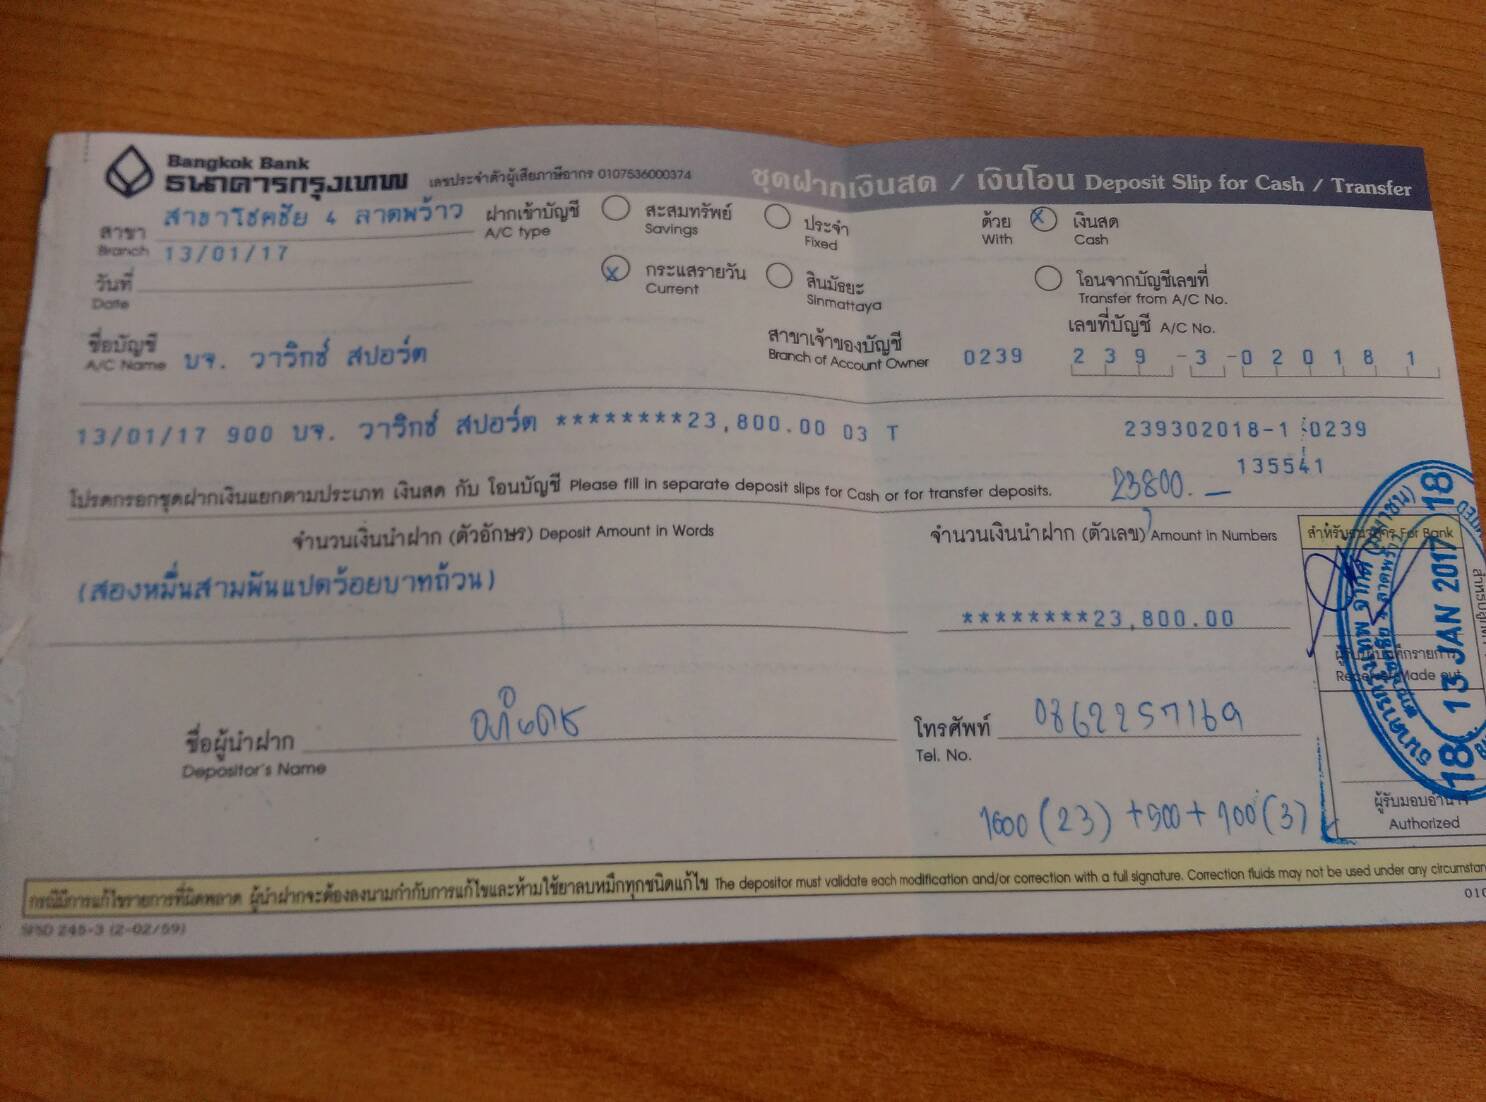 Bangkok Bank
ธนาคารกรุงเทพ เลขประจำตัวผู้เสียภาษีอากร 0107536000374 ชุดฝากเงินสด / เงินโอน Deposit Slip for Cash / Transfer
สาขา Branch สาขาโชคชัย 4 ลาดพร้าว ฝากเข้าบัญชี A/C type สะสมทรัพย์ Savings ประจำ Fixed ด้วย With x เงินสด Cash
วันที่ Date 13/01/17 x กระแสรายวัน Current สินมัธยะ Sinmattaya โอนจากบัญชีเลขที่ Transfer from A/C No.
ชื่อบัญชี A/C Name บจ. วาริกซ์ สปอร์ต สาขาเจ้าของบัญชี Branch of Account Owner 0239 เลขที่บัญชี A/C No. 239-3-02018 1
13/01/17 900 บจ. วาริกซ์ สปอร์ต ********23,800.00 03 T 239302018-1 0239
135541
โปรดกรอกชุดฝากเงินแยกตามประเภท เงินสด กับ โอนบัญชี Please fill in separate deposit slips for Cash or for transfer deposits. 23800.—
จำนวนเงินนำฝาก (ตัวอักษร) Deposit Amount in Words จำนวนเงินนำฝาก (ตัวเลข) Amount in Numbers สำหรับธนาคาร For Bank
(สองหมื่นสามพันแปดร้อยบาทถ้วน) ********23,800.00
18 13 JAN 2017 18
ชื่อผู้นำฝาก Depositor's Name โทรศัพท์ Tel. No. 0862257169
1000 (23) + 500 + 100 (3)
ผู้รับมอบอำนาจ
Authorized
กรณีมีการแก้ไขรายการที่ผิดพลาด ผู้นำฝากจะต้องลงนามกำกับการแก้ไขและห้ามใช้ยาลบหมึกทุกชนิดแก้ไข The depositor must validate each modification and/or correction with a full signature. Correction fluids may not be used under any circumstan
SPSD 245-3 (2-02/59)